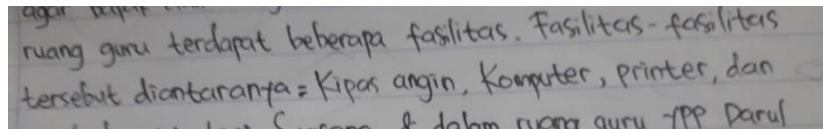 agar
ruang guru terdapat beberapa fasilitas. Fasilitas-fasilitas
tersebut diantaranya = Kipas angin, Komputer, printer, dan
& dalam ruang guru YPP Darul